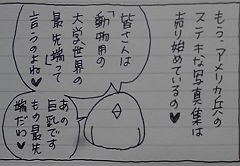 もう、アメリカ兵の
ステキな写真集は
売り始めているの♥
皆さんは
「動物用の
大学世界の
最先端って
言うのよね♥
あの
巨乳です
もの最先
端だわ♥